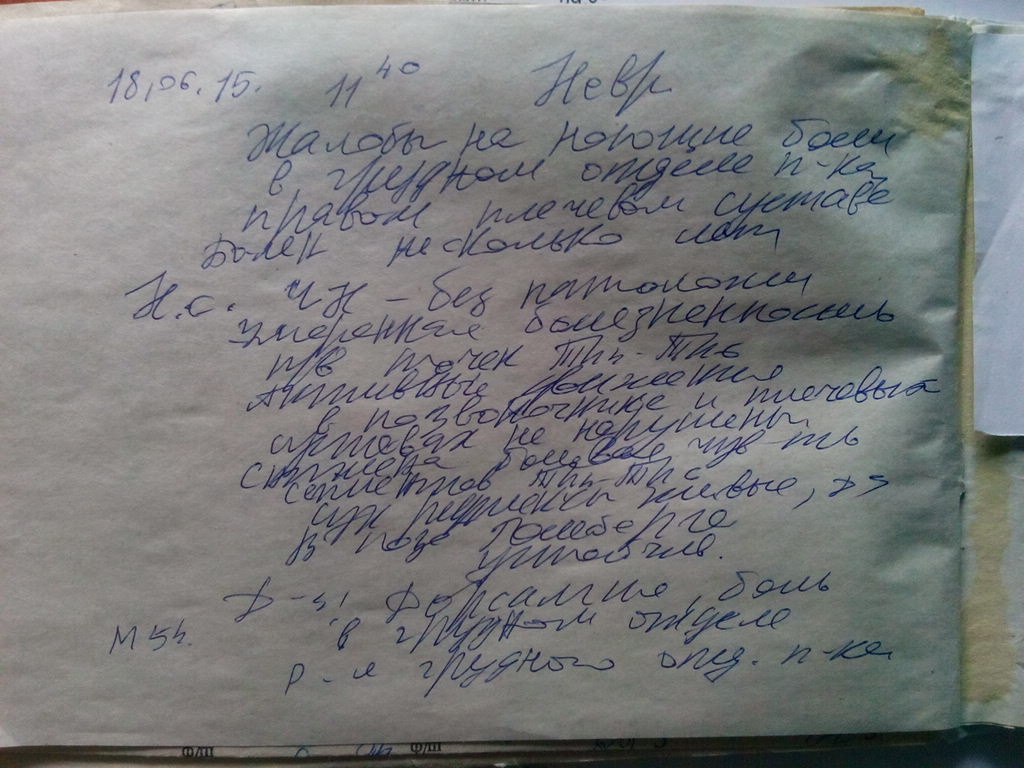 18.06.15. 11 40 Невр
Жалобы на ноющие боли
в грудном отделе п-ка,
правом плечевом суставе
Болен несколько лет
Н.с. ЧН - без патологии
Умеренная болезненность
п/в точек
Активные движения
в позвоночнике и плечевых
суставах не нарушены
Снижена болевая чув-ть
сегментов
сух рефлексы живые, D=S
В позе Ромберга
устойчив.
D-s: Дорсалгия, боль
M 54. в грудном отделе
R-я грудного отд. п-ка
Ф/Ш